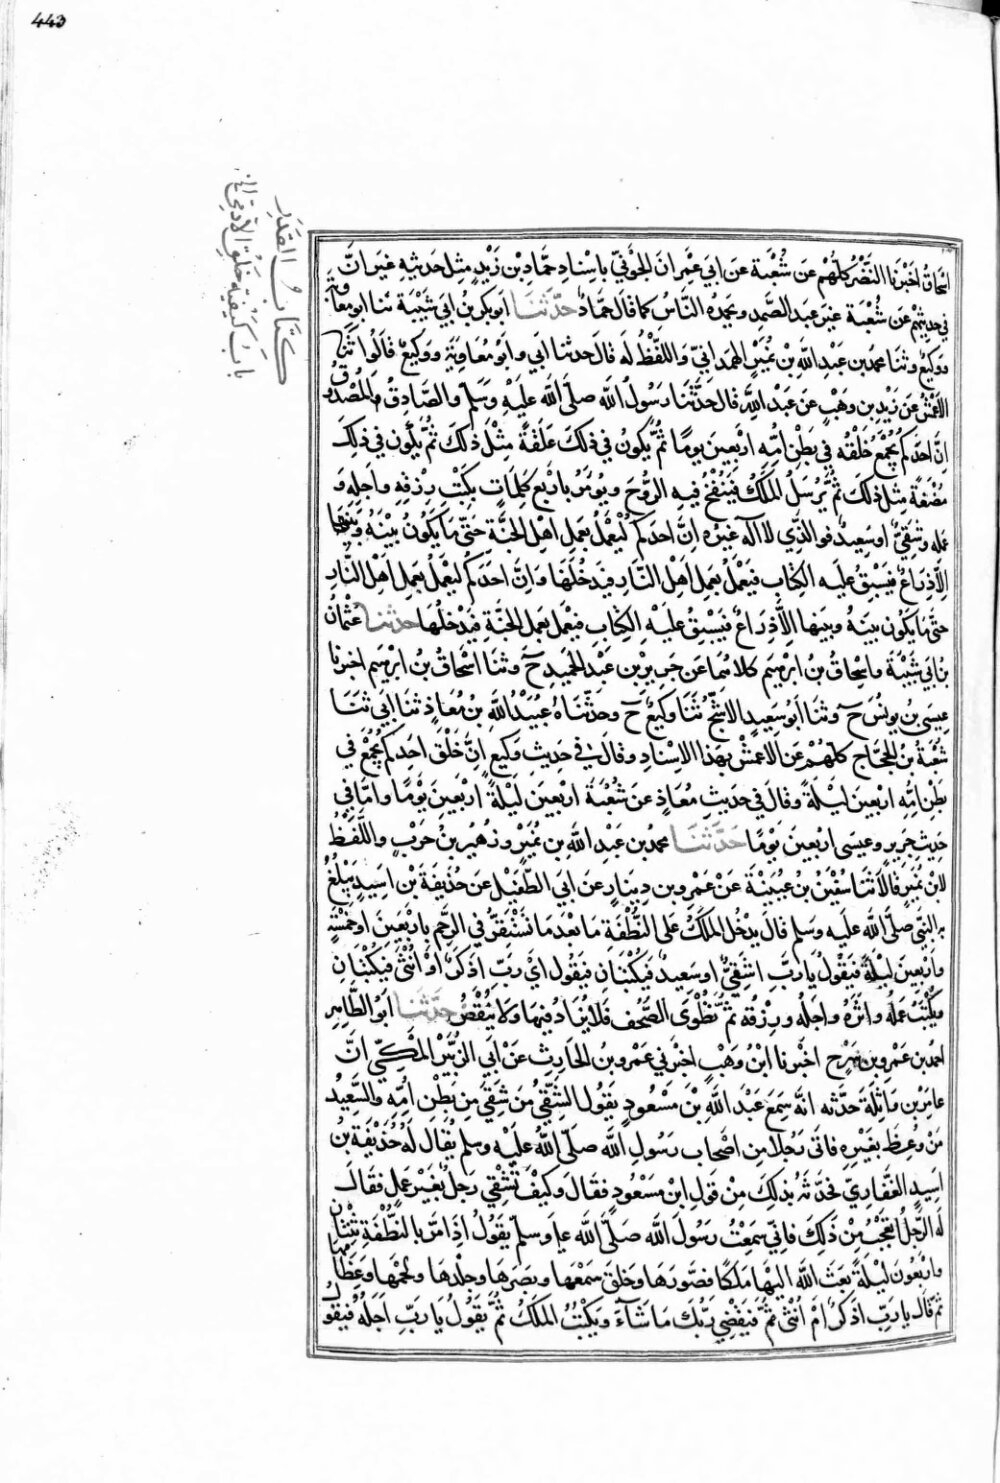 443
كتاب القدر
باب كيفية خلق الآدمي
اسحاق اخبرنا النضر كلهم عن شعبة عن ابي عمران الجوني باسناد حماد بن زيد مثل حديثه غير ان
في حديثهم عن شعبة غير عبد الصمد ويحمده الناس كما قال حماد حدثنا ابو بكر بن ابي شيبة ثنا ابو معاوية
ووكيع وثنا محمد بن عبد الله بن نمير الهمداني واللفظ له قال حدثنا ابي وابو معاوية ووكيع قالوا ثنا
الاعمش عن زيد بن وهب عن عبد الله قال حدثنا رسول الله صلى الله عليه وسلم والصادق المصدوق
ان احدكم يجمع خلقه في بطن امه اربعين يوما ثم يكون في ذلك علقة مثل ذلك ثم يكون في ذلك
مضغة مثل ذلك ثم يرسل الملك فينفخ فيه الروح ويومر باربع كلمات بكتب رزقه واجله و
عمله وشقي او سعيد فوالذي لا اله غيره ان احدكم ليعمل بعمل اهل الجنة حتى ما يكون بينه وبينها
الا ذراع فيسبق عليه الكتاب فيعمل بعمل اهل النار فيدخلها وان احدكم ليعمل بعمل اهل النار
حتى ما يكون بينه وبينها الا ذراع فيسبق عليه الكتاب فيعمل بعمل الجنة فيدخلها حدثنا عثمان
بن ابي شيبة واسحاق بن ابرهيم كلاهما عن جرير بن عبد الحميد ح وثنا اسحاق بن ابرهيم اخبرنا
عيسى بن يونس ح وثنا ابو سعيد الاشج ثنا وكيع ح وحدثناه عبيد الله بن معاذ ثنا ابي ثنا
شعبة بن الحجاج كلهم عن الاعمش بهذا الاسناد وقال في حديث وكيع ان خلق احدكم يجمع في
بطن امه اربعين ليلة وقال في حديث معاذ عن شعبة اربعين ليلة اربعين يوما واما في
حديث جرير وعيسى اربعين يوما حدثنا محمد بن عبد الله بن نمير وزهير بن حرب واللفظ
لابن نمير قالا ثنا سفين بن عيينة عن عمرو بن دينار عن ابي الطفيل عن حذيفة بن اسيد يبلغ
به النبي صلى الله عليه وسلم قال يدخل الملك على النطفة ما بعد ما تستقر في الرحم باربعين او خمسة
واربعين ليلة فيقول يا رب اشقي او سعيد فيكتبان فيقول اي رب اذكر او انثى فيكتبان
ويكتب عمله واثره واجله ورزقه ثم تطوى الصحف فلا يزاد فيها ولا ينقص حدثنا ابو الطاهر
احمد بن عمرو بن سرح اخبرنا ابن وهب اخبرني عمرو بن الحارث عن ابي الزبير المكي ان
عامر بن واثلة حدثه انه سمع عبد الله بن مسعود يقول الشقي من شقي من بطن امه والسعيد
من وعظ بغيره فاتى رجلا من اصحاب رسول الله صلى الله عليه وسلم يقال له حذيفة بن
اسيد الغفاري فحدثه بذلك من قول ابن مسعود فقال وكيف تشقي رجل بغير عمل فقال
له الرجل اتعجب من ذلك فاني سمعت رسول الله صلى الله عليه وسلم يقول اذا مر بالنطفة ثنتان
واربعون ليلة بعث الله اليها ملكا فصورها وخلق سمعها وبصرها وجلدها ولحمها وعظامها
ثم قال يا رب اذكر ام انثى ثم فيقضي ربك ما شاء ويكتب الملك ثم يقول يا رب اجله فيقول